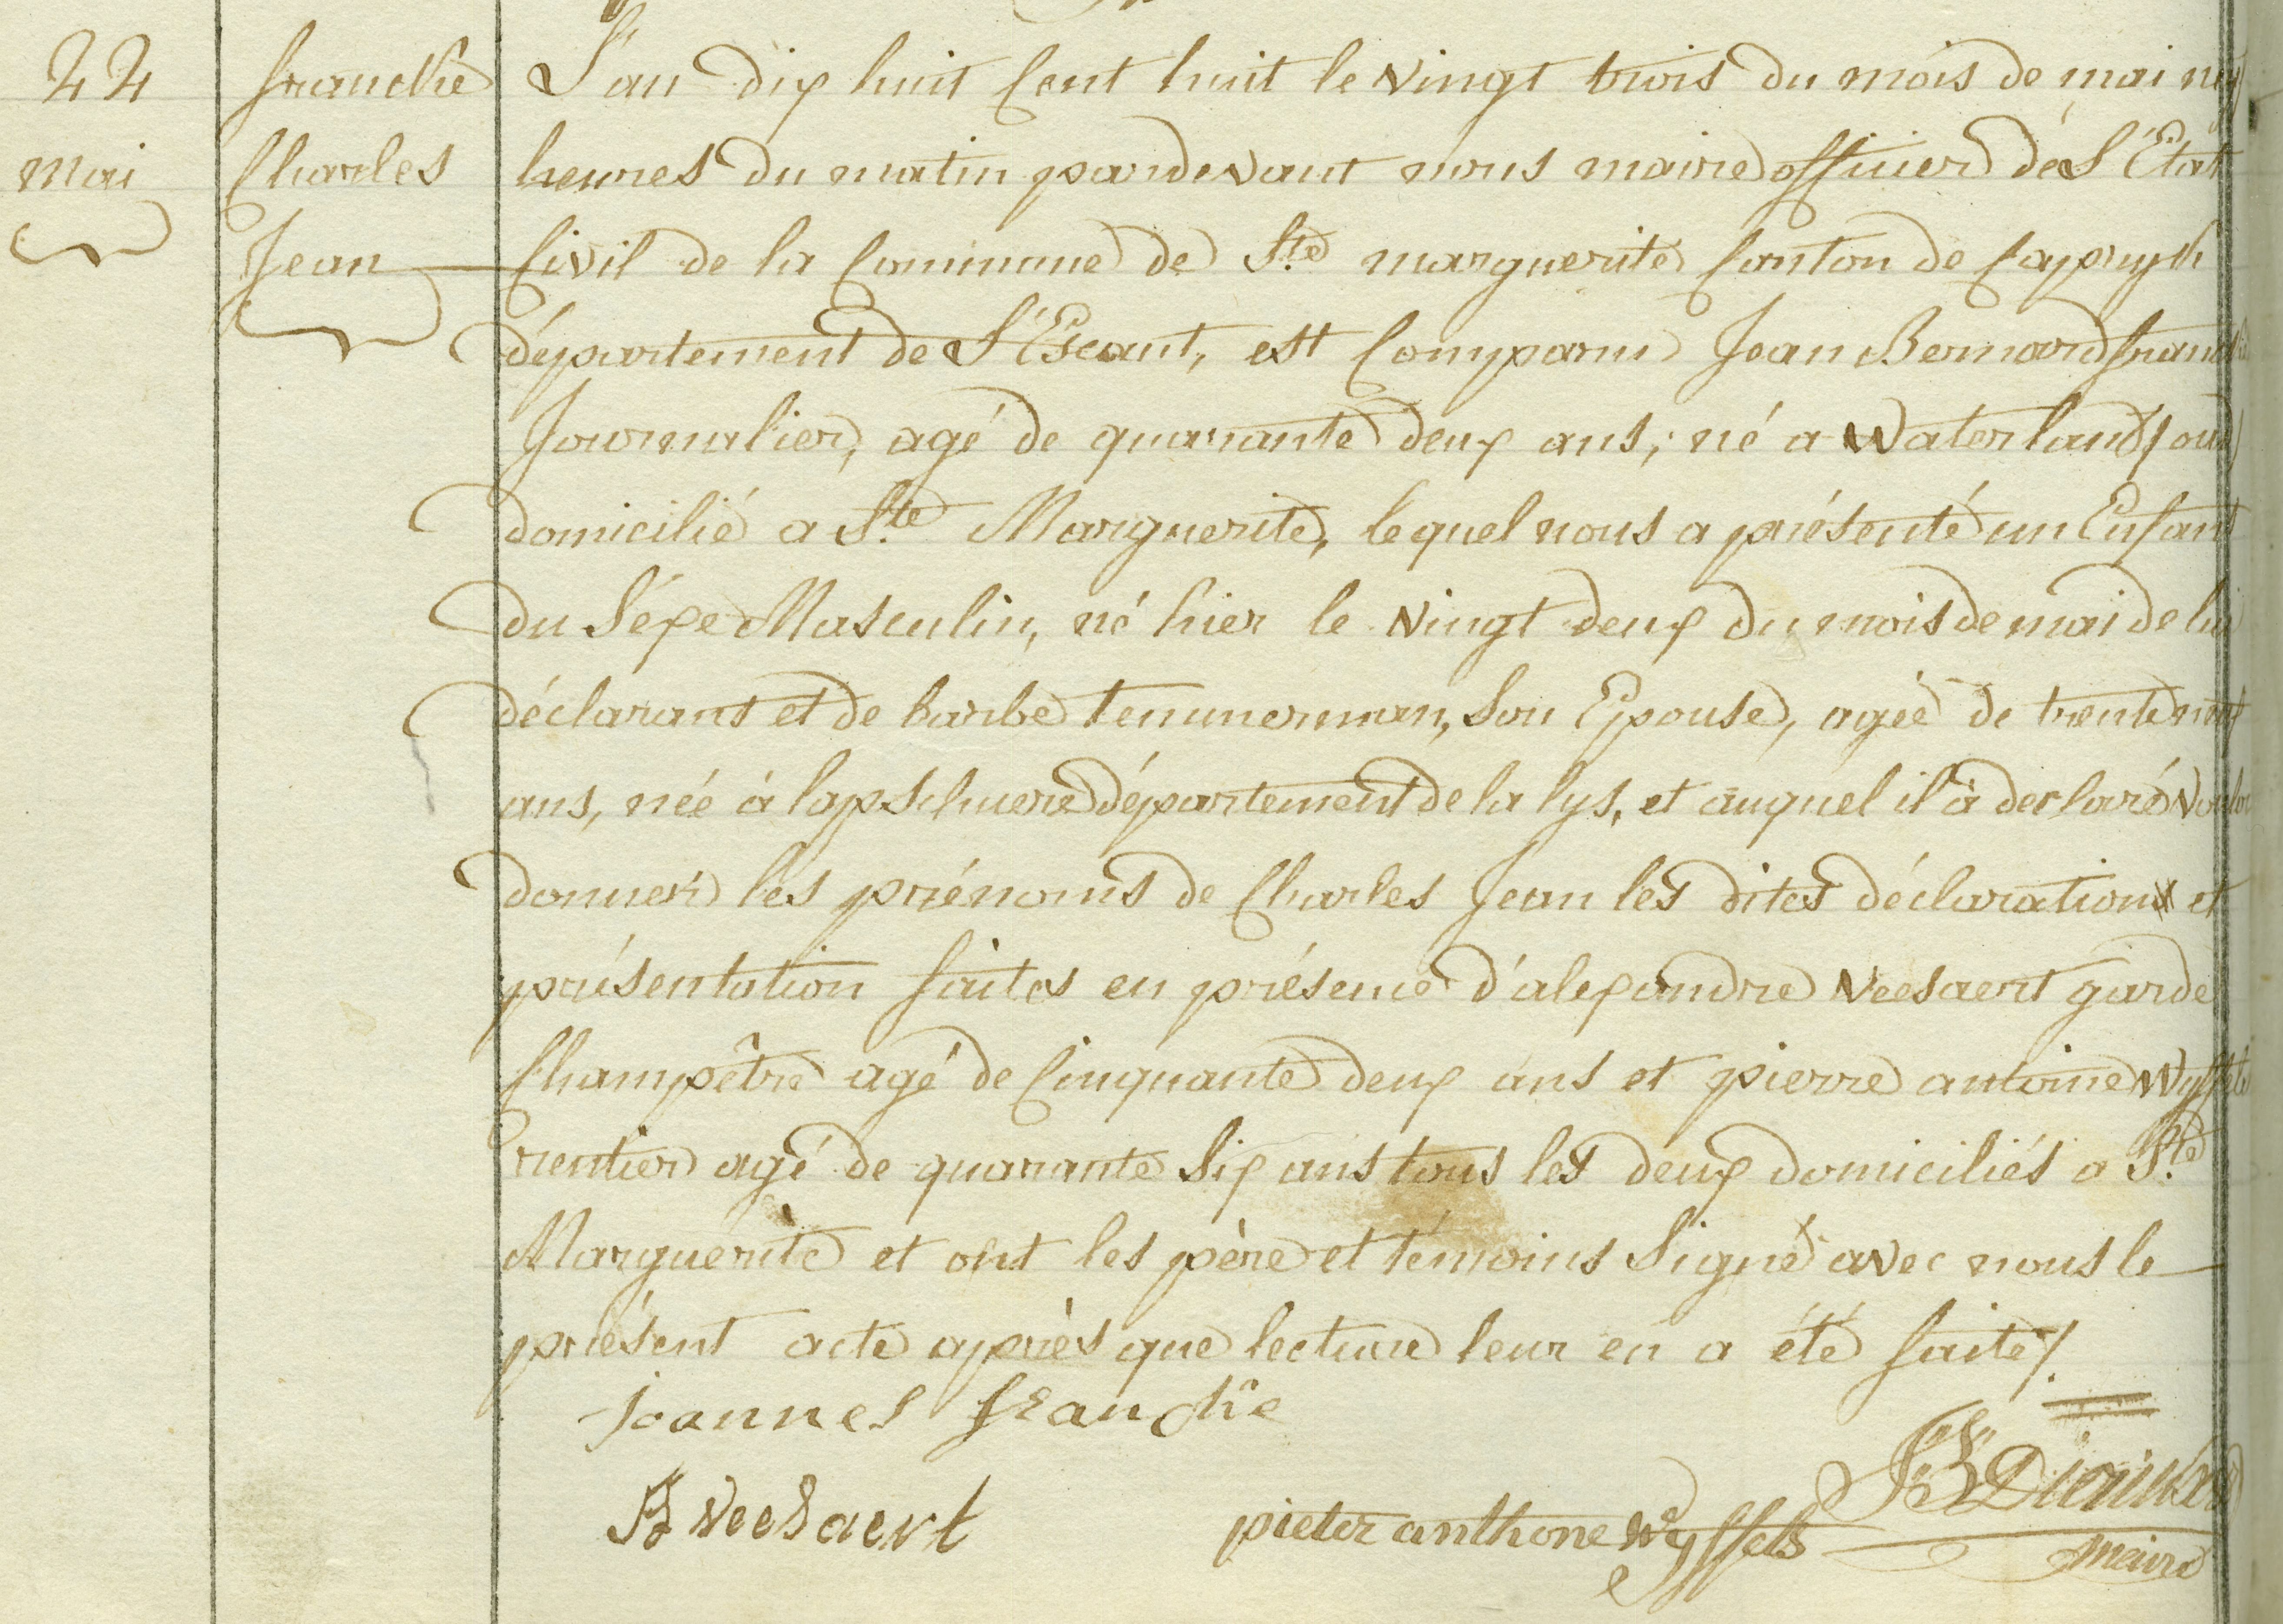 22
mai
franchie
Charles
Jean
L'an dix huit Cent huit le vingt trois du mois de mai
heures du matin pardevant nous maire officier de L'Etat
Civil de la Commune de Ste marguerite Canton de Capryck
département de L'Escaut, est Comparu Jean Bernard
Journalier, agé de quarante deux ans, né a Waterland
domicilié a Ste Marguerite, lequel nous a présenté un Enfant
du Séxe Masculin, né hier le vingt deux du mois de mai de lui
déclarant et de barbe temmerman, Son Epouse, agée de trente
ans, née à lapschuere département de la lys, et auquel il à declaré
donner les prénoms de Charles Jean les dites déclaration et
présentation faites en présence d'alexandre veesaert garde
Champêtre agé de Cinquante deux ans et pierre antoine
rentier agé de quarante Six ans tous les deux domiciliés a Ste
Marguerite et ont les père et témoins Signé avec nous le
présent acte après que lecture leur en a été faite /.
joannes franchie
veesaert
pieter anthone wyffels
maire